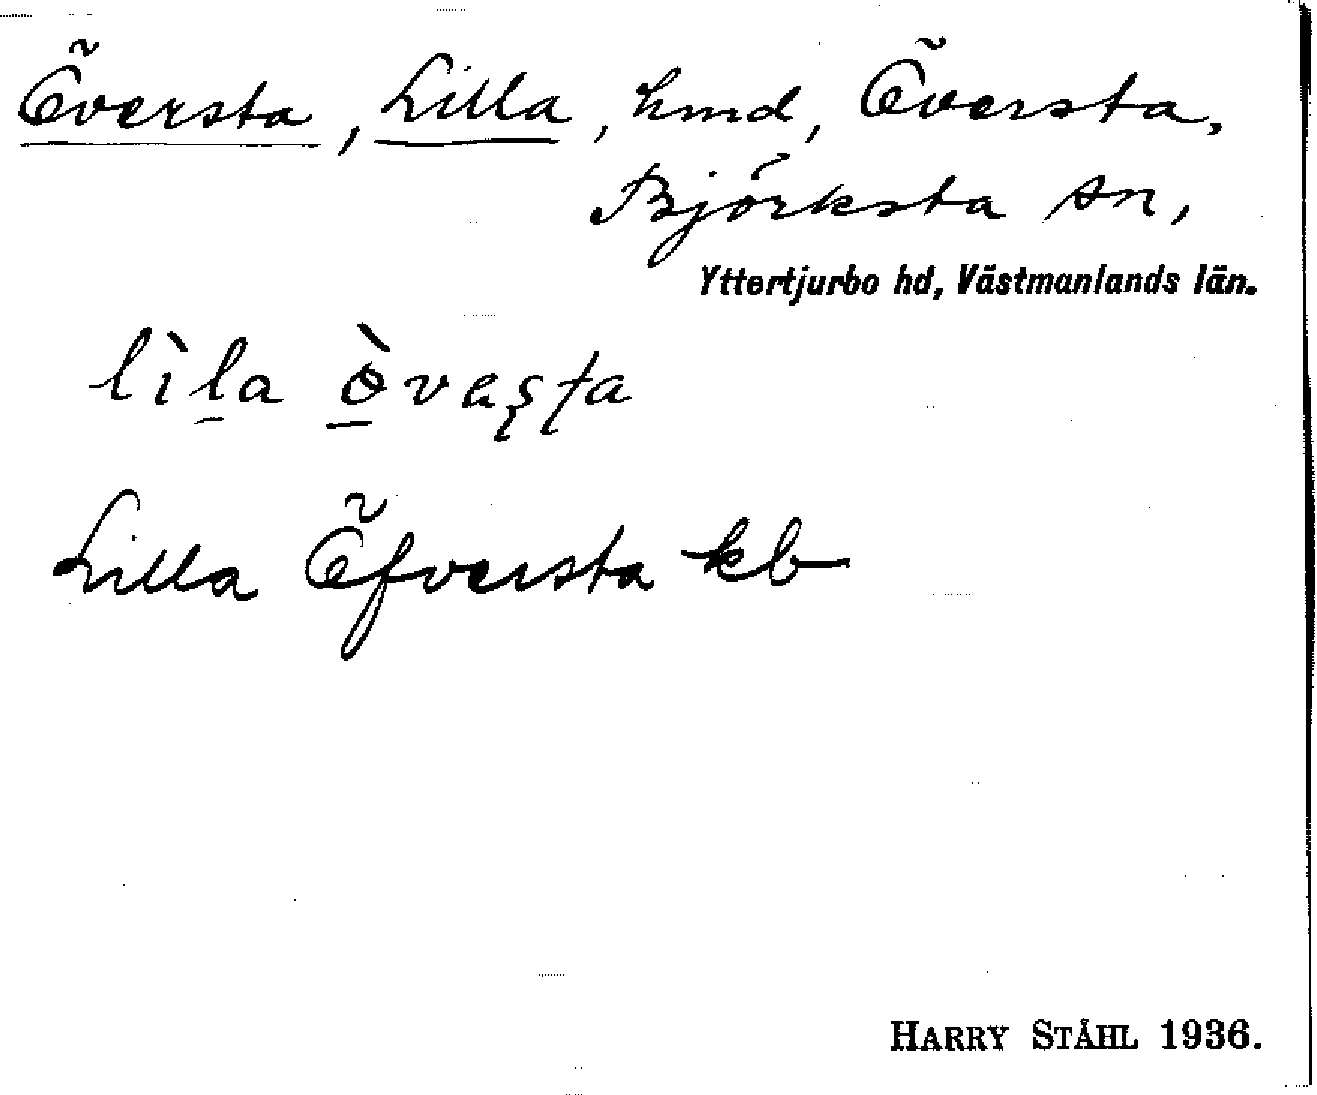 Översta, Lilla, hmd, Översta,
Björksta sn,
Yttertjurbo hd, Västmanlands län.
lìl̠a ø̠̀vaʂʈa
Lilla Öfversta kb
HARRY STÅHL 1936.